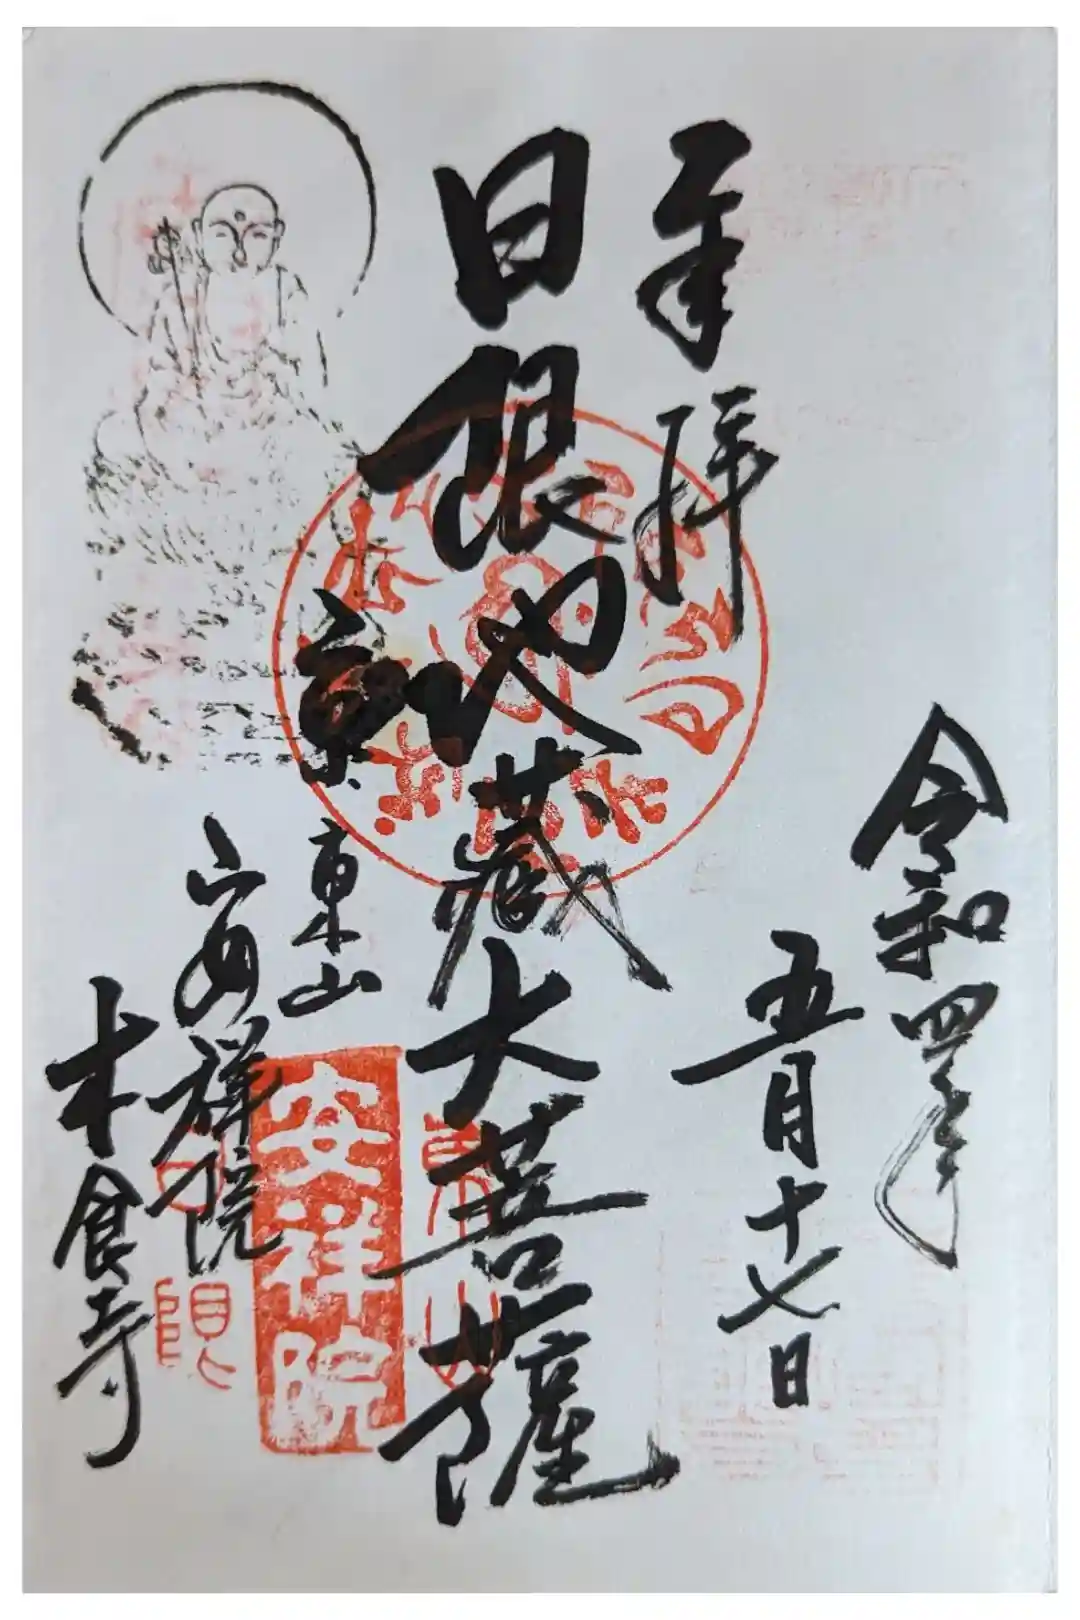 令和四年
五月十七日
奉拝
日限地蔵大菩薩
京
東山
安祥院
木食寺
安祥院
東山
日限